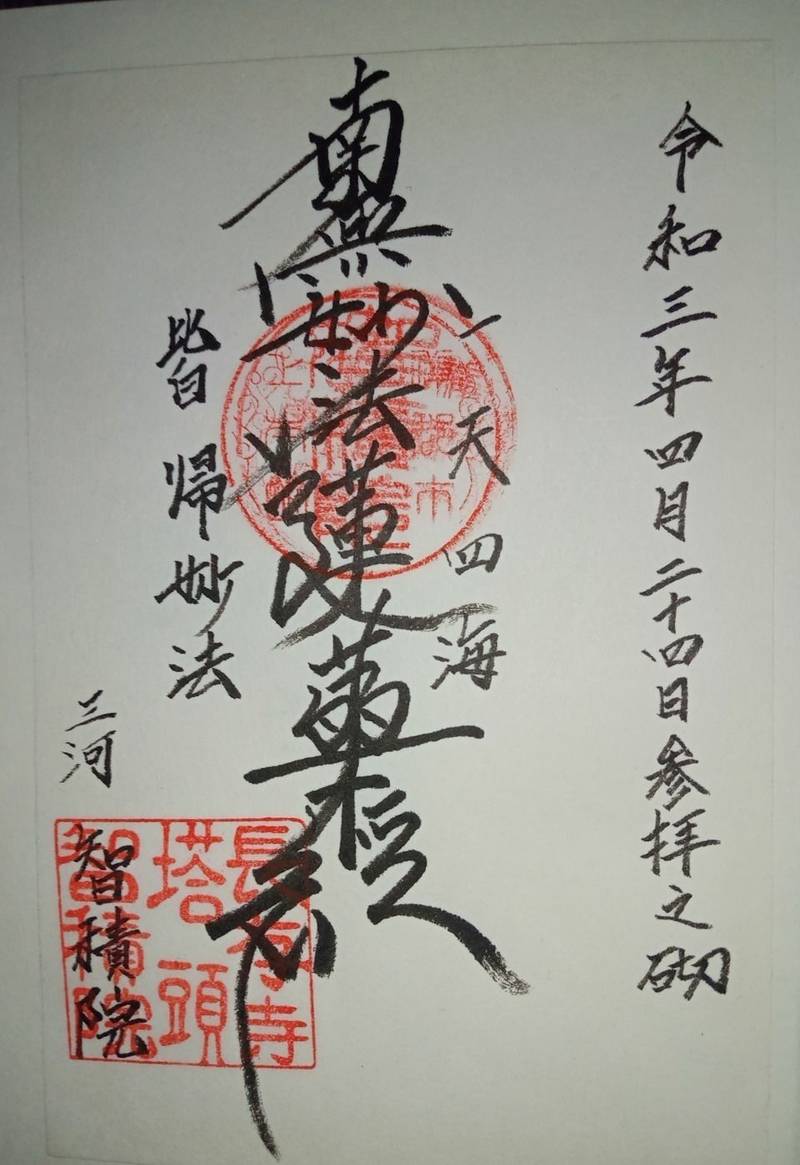 令和三年四月二十四日参拝之砌
一天四海
南無妙法蓮華経
皆帰妙法
三河
智積院
長存寺
塔頭
智積院